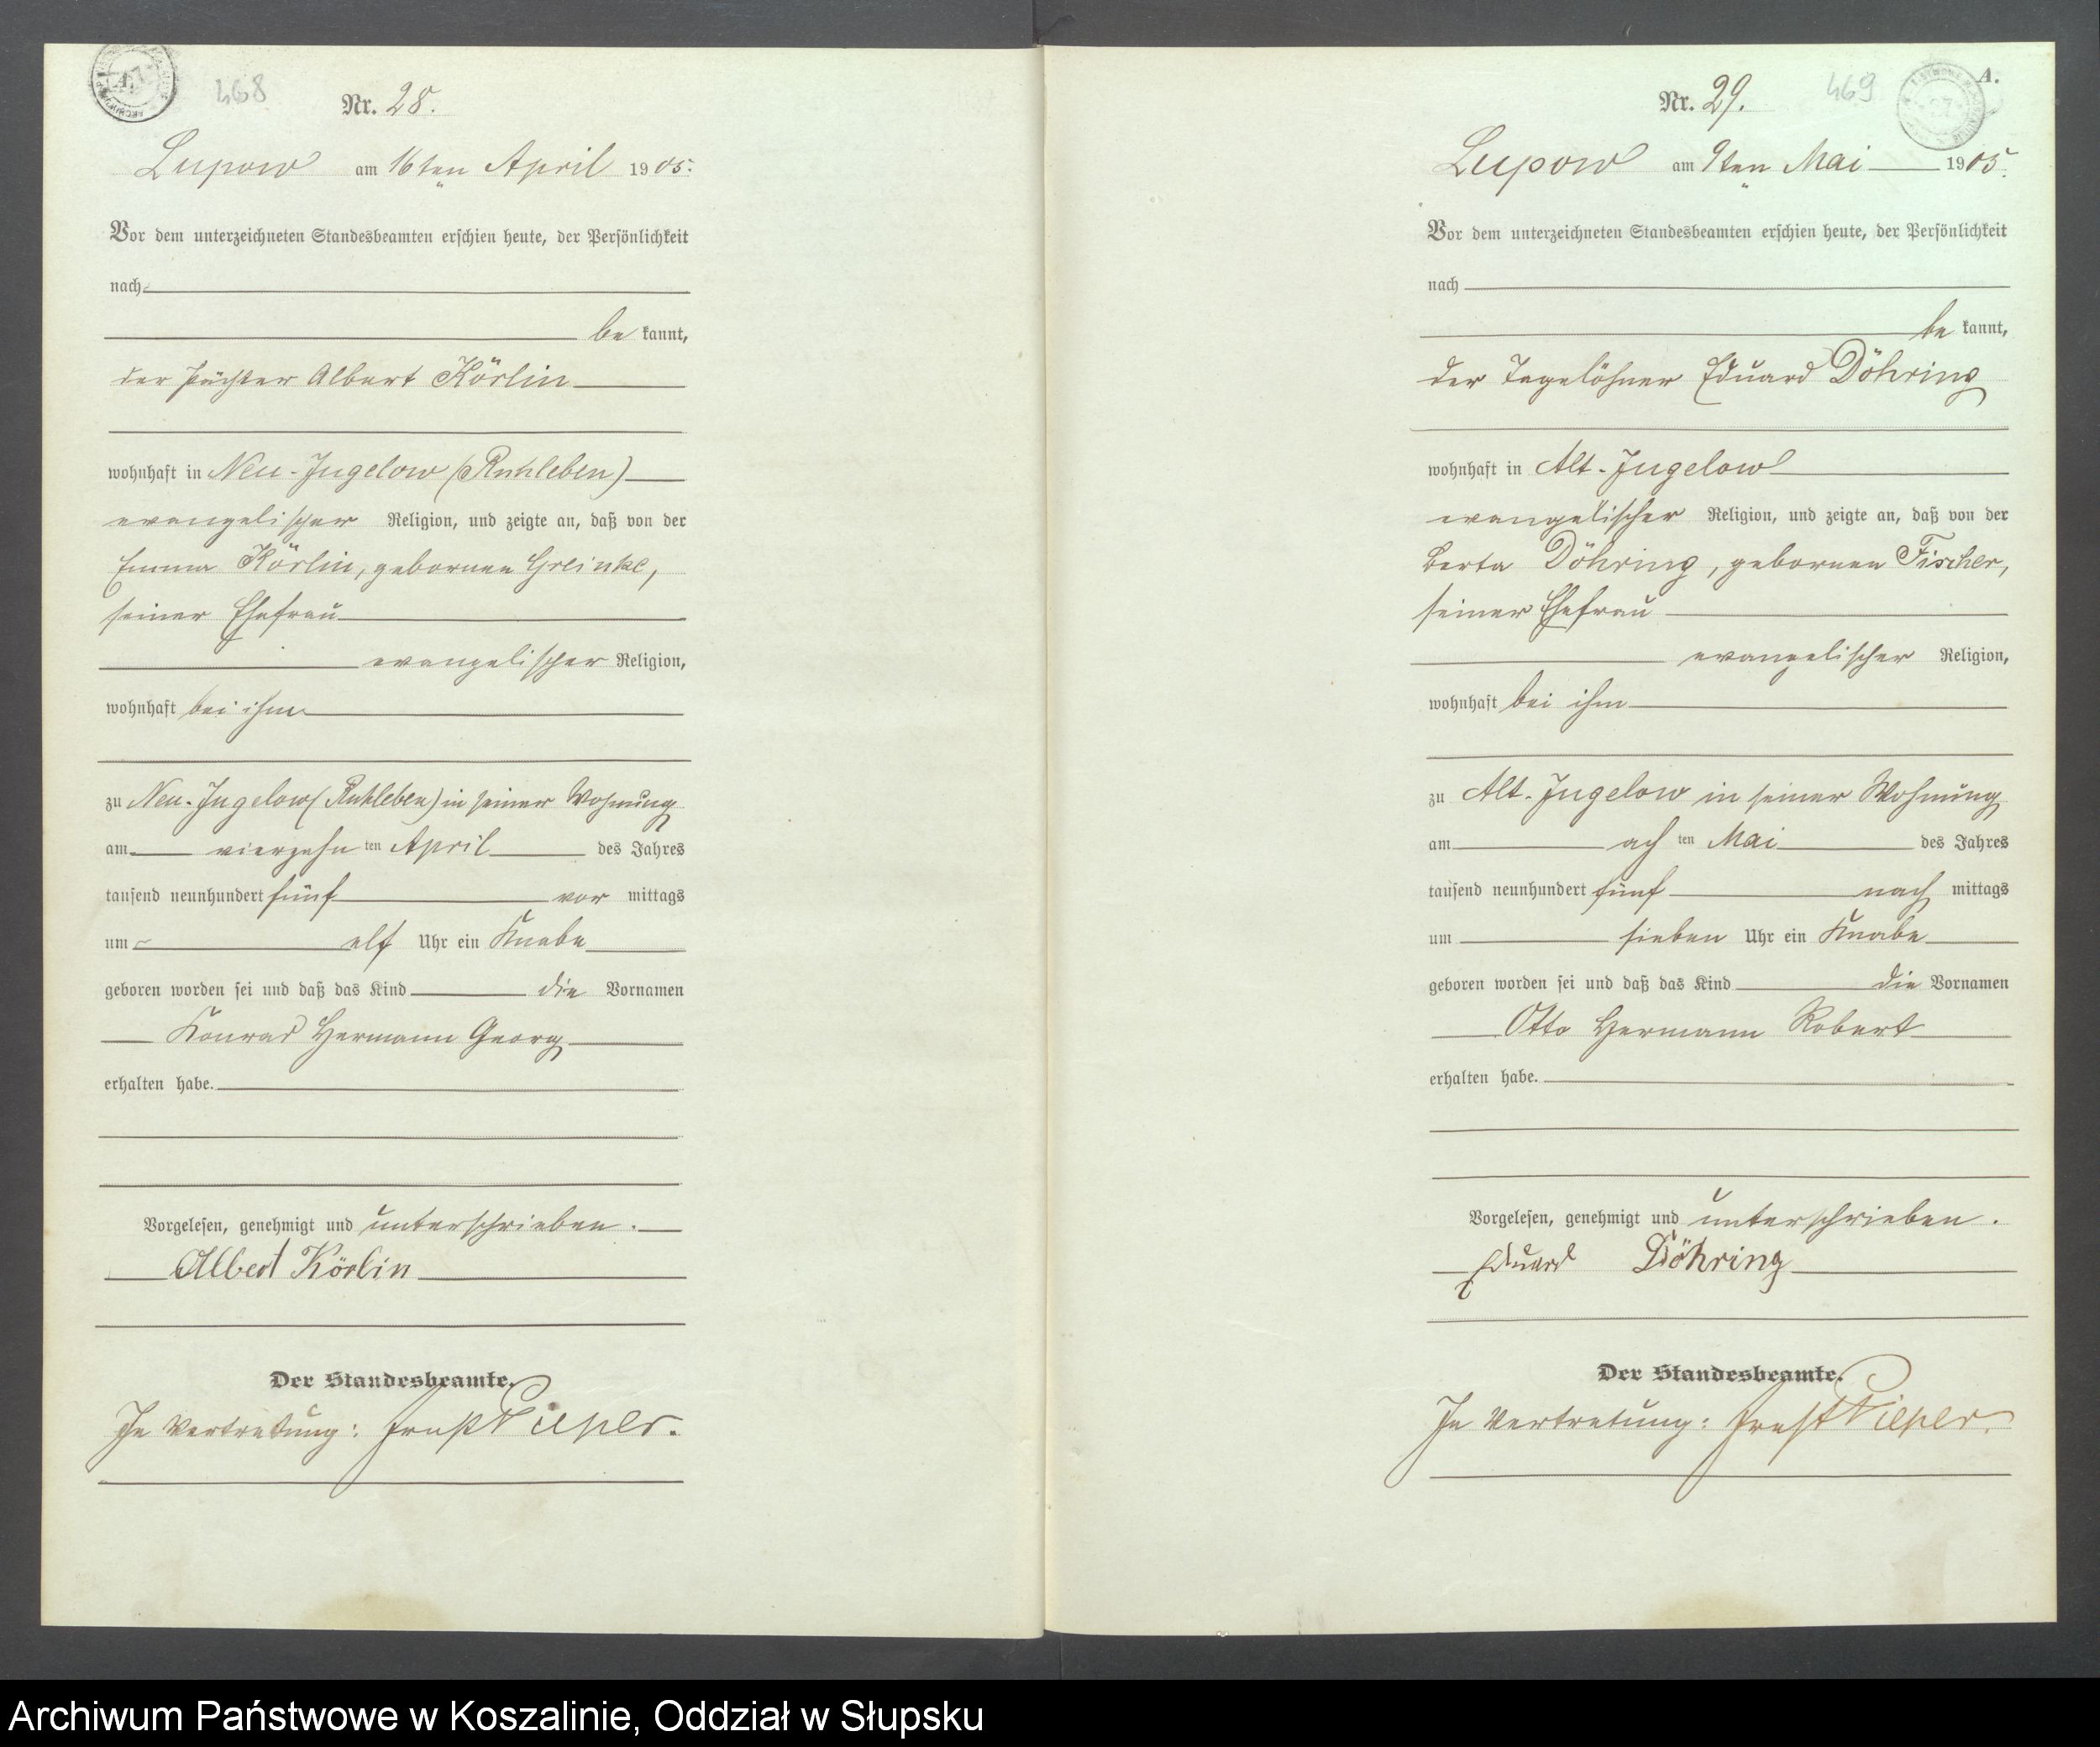 468
Nr. 28.
Lupow am 16ten April 1905.
Vor dem unterzeichneten Standesbeamten erschien heute, der Persönlichkeit
nach
be kannt,
der Pächter Albert Körlin
wohnhaft in Neu-Jugelow (Ruhleben)
evangelischer Religion, und zeigte an, daß von der
Emma Körlin, geborenen Greinke,
seiner Ehefrau
evangelischer Religion,
wohnhaft bei ihm
zu Neu-Jugelow (Ruhleben) in seiner Wohnung
am vierzehn ten April des Jahres
tausend neunhundert fünf vor mittags
um elf Uhr ein Knabe
geboren worden sei und daß das Kind die Vornamen
Konrad Hermann Georg
erhalten habe.
Vorgelesen, genehmigt und unterschrieben.
Albert Körlin
Der Standesbeamte.
In Vertretung: Ernst Pieper.
469
A.
Nr. 29.
Lupow am 9ten Mai 1905.
Vor dem unterzeichneten Standesbeamten erschien heute, der Persönlichkeit
nach
be kannt,
der Tagelöhner Eduard Döhring
wohnhaft in Alt-Jugelow
evangelischer Religion, und zeigte an, daß von der
Berta Döhring, geborenen Fischer,
seiner Ehefrau
evangelischer Religion,
wohnhaft bei ihm
zu Alt-Jugelow in seiner Wohnung
am ach ten Mai des Jahres
tausend neunhundert fünf nach mittags
um sieben Uhr ein Knabe
geboren worden sei und daß das Kind die Vornamen
Otto Hermann Robert
erhalten habe.
Vorgelesen, genehmigt und unterschrieben.
Eduard Döhring
Der Standesbeamte.
In Vertretung: Ernst Pieper.
Archiwum Państwowe w Koszalinie, Oddział w Słupsku